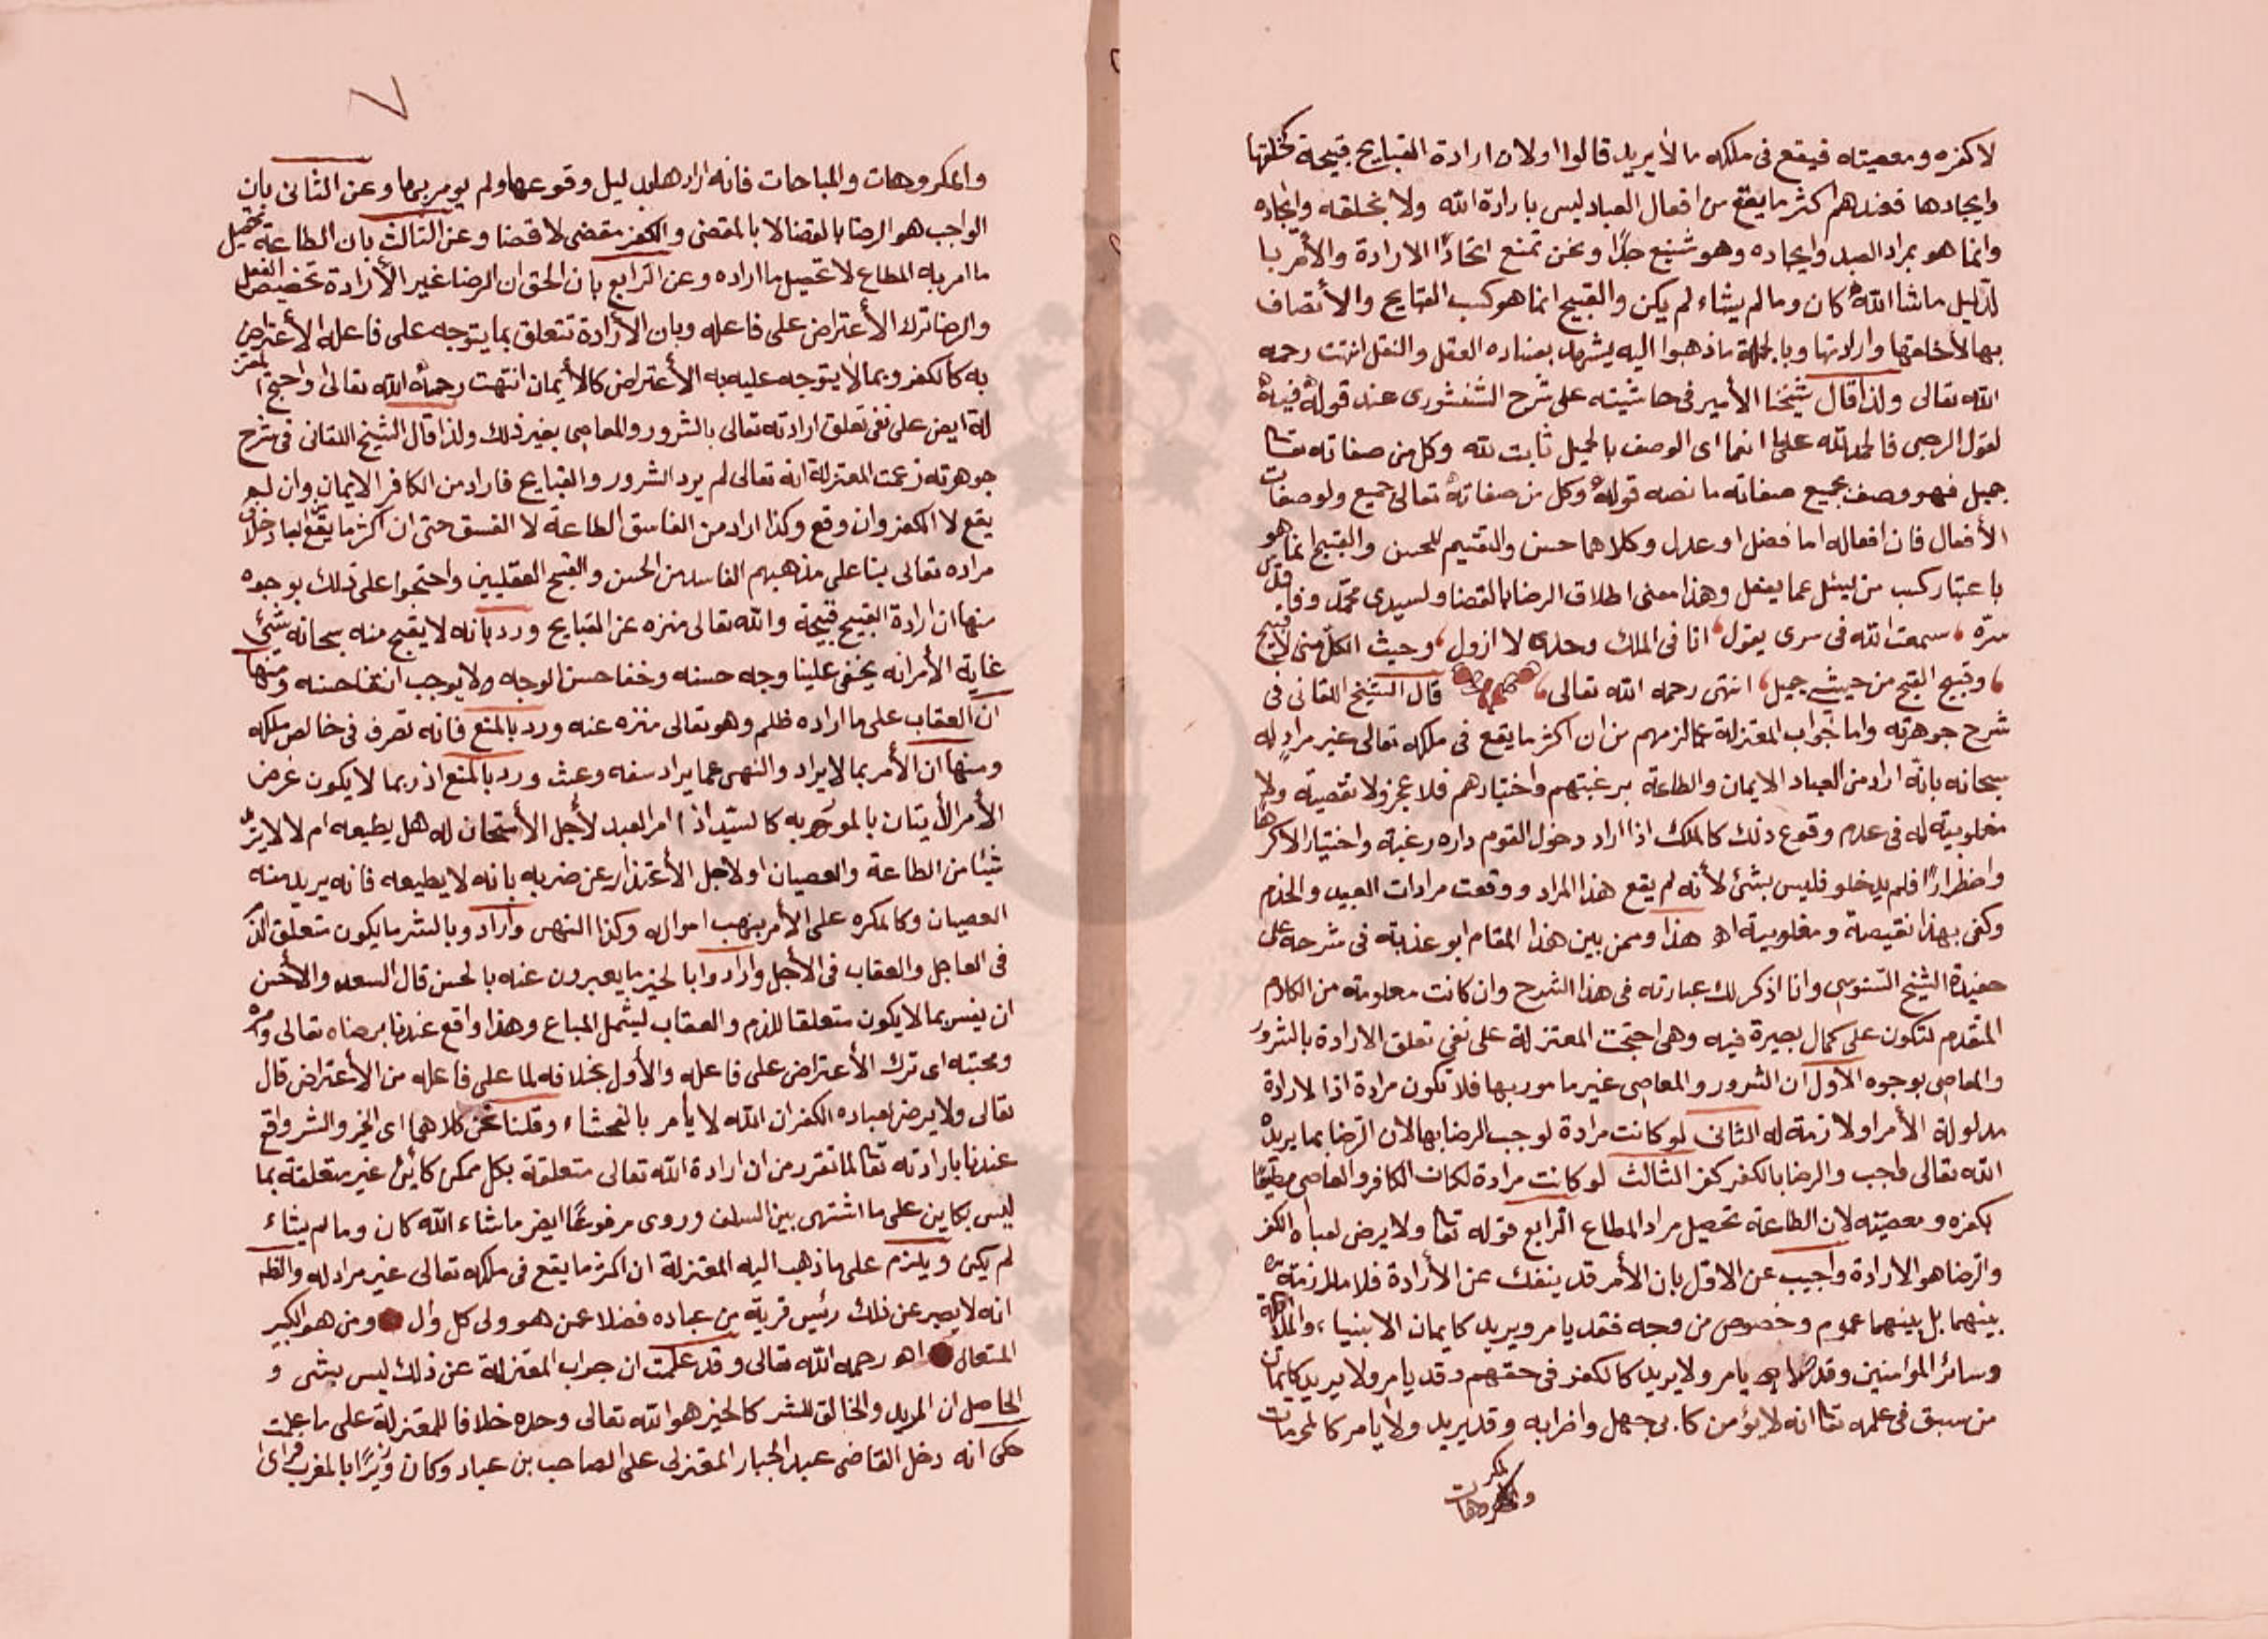 لا كفره ومعصيته فيقع فى ملكه ما لا يريد قالوا اولا ان ارادة القبايح قبيحة كخلقها
وايجادها فعندهم اكثر ما يقع من افعال العباد ليس بارادة الله ولا بخلقه وايجاده
وانما هو بمراد العبد وايجاده وهو شنيع جدًا ونحن نمنع اتحاد الارادة والأمر با
لدليل ما شا الله كان وما لم يشاء لم يكن والقبيح انما هو كسب القبايح والأتصاف
بها لا خلقها وارادتها وبالجملة ما ذهبوا اليه يشهد بفساده العقل والنقل انتهت رحمه
الله تعالى ولذا قال شيخنا الأمير فى حاشيته على شرح الشنشورى عند قوله فيه
لقول الرحبى فالحمد لله على ما انعما اى الوصف بالجميل ثابت لله وكل من صفاته تعا
جميل فهو وصف بجميع صفاته ما نصه قوله وكل من صفاته تعالى جميع ولو صفات
الأفعال فان افعاله اما فضل او عدل وكلاهما حسن والتقسيم للحسن والقبيح انما هو
باعتبار كسب من ليسئل عما يفعل وهذا معنى اطلاق الرضا بالقضا ولسيدى محمد وفا قدس
سرّه سمعت الله فى سرى يقول انا فى الملك وحدى لا ازول وحيث الكل منى لا قبيح
وقبيح القبح من حيثى جميل انتهى رحمه الله تعالى قال الشيخ اللقانى فى
شرح جوهرته واما جواب المعتزلة عما لزمهم من ان اكثر ما يقع فى ملكه تعالى غير مراد له
سبحانه بانّه اراد من العباد الايمان والطاعة برغبتهم واختيارهم فلا عجز ولا نقصية ولا
مغلوبية له فى عدم وقوع ذلك كالملك اذا اراد دخول القوم داره رغبة واختيارا لا كرها
واضطرارًا فلم يدخلو فليس بشئ لأنه لم يقع هذا المراد ووقعت مرادات العبيد والخدم
وكفى بهذا نقيصة ومغلوبية اهـ هذا وممن بين هذا المقام ابو عذبة فى شرحه على
حفيدة الشيخ السّنوسى وانا اذكر لك عبارته فى هذا الشرح وان كانت معلومة من الكلام
المتقدم لتكون على كمال بصيرة فيه وهى احتجت المعتزلة على نفى تعلق الارادة بالشرور
والمعاصى بوجوه الأول ان الشرور والمعاصى غير مامور بها فلا تكون مرادة اذ الارادة
مدلولة الأمر او لازمة له الثانى لو كانت مرادة لوجب الرضا بها لان الرضا بما يريد
الله تعالى واجب والرضا بالكفر كفر الثالث لو كانت مرادة لكان الكافر والعاصى مطيعًا
بكفره ومعصيته لان الطاعة تحصيل مراد المطاع الرابع قوله تعا ولا يرضى لعباده الكفر
والرضا هو الارادة واجيب عن الاول بان الأمر قد ينفك عن الأرادة فلا ملازمة
بينهما بل بينهما عموم وخصوص من وجه فقد يامر ويريد كايمان الانبياء والملائكة
وسائر المؤمنين وقد لا يامر ولا يريد كالكفر فى حقهم وقد يامر ولا يريد كايمان
من سبق فى علمه تعا انه لا يؤمن كابى جهل واضرابه وقد يريد ولا يامر كالمحرمات
والمكروهات
٧
والمكروهات والمباحات فانه ارادها بدليل وقوعها ولم يومر بها وعن الثانى بان
الواجب هو الرضا بالقضا لا بالمقضى والكفر مقضى لا قضا وعن الثالث بان الطاعة تحصيل
ما امر به المطاع لا تحصيل ما اراده وعن الرابع بان الحق ان الرضا غير الأرادة تخصيص الفعل
والرضا ترك الأعتراض على فاعله وبان الأرادة تتعلق بما يتوجه على فاعله الأعتراض
به كالكفر وبما لا يتوجه عليه به الأعتراض كالأيمان انتهت رحمه الله تعالى واحتج المعتز
لة ايض على نفى تعلق ارادته تعالى بالشرور والمعاصى بغير ذلك ولذا قال الشيخ اللقانى فى شرح
جوهرته زعمت المعتزلة انه تعالى لم يرد الشرور والقبايح فاراد من الكافر الايمان وان لم
يقع لا الكفر وان وقع وكذا اراد من الفاسق الطاعة لا الفسق حتى ان اكثر ما يقع لعباد خلاف
مراده تعالى بنا على مذهبهم الفاسد من الحسن والقبح العقليين واحتجوا على ذلك بوجوه
منها ان ارادة القبيح قبيحة والله تعالى منزه عن القبايح ورد بانه لا يقبح منه سبحانه شئ
غاية الأمر انه يخفى علينا وجه حسنه وخفا حسن الوجه لا يوجب انتفا حسنه ومنها
ان العقاب على ما اراده ظلم وهو تعالى منزه عنه ورد بالمنع فانه تصرف فى خالص ملكه
ومنها ان الأمر بما لا يراد والنهى عما يراد سفه وعبث ورد بالمنع اذ ربما لا يكون غرض
الأمر الأيتان بالمومر به كالسيّد اذا امر العبد لأجل الأمتحان له هل يطيعه ام لا لا يريد
شيئا من الطاعة والعصيان او لأجل الأعتذار عن ضربه بانه لا يطيعه فانه يريد منه
العصيان وكالمكره على الأمر بنهب امواله وكذا النهى وأراد وبالشر ما يكون متعلق الذم
فى العاجل والعقاب فى الأجل وارادوا بالخير ما يعبرون عنه بالحسن قال السعد والأحسن
ان يفسر بما لا يكون متعلقا للذم والعقاب ليشمل المباع وهذا واقع عندنا برضاه تعالى وامره
ومحبته اى ترك الأعتراض على فاعله والأول بخلافه لما على فاعله من الأعتراض قال
تعالى ولا يرضى لعباده الكفر ان الله لا يأمر بالفحشاء وقلنا نحن كلاهما اى الخير والشر واقع
عندنا بارادته تعا لما تقرر من ان ارادة الله تعالى متعلقة بكل ممكن كائن غير متعلقة بما
ليس بكاين على ما اشتهى بين السلف وروى مرفوعًا ايض ما شاء الله كان وما لم يشاء
لم يكن ويلزم على ما ذهب اليه المعتزلة ان اكثر ما يقع فى ملكه تعالى غير مراد له والظـ
انه لا يصبر عن ذلك رئيس قرية من عباده فضلا عمن هو ولى كل وال ومن هو الكبير
المتعال اهـ رحمه الله تعالى وقد علمت ان جواب المعتزلة عن ذلك ليس بشى و
الحاصل ان المريد والخالق للشر كالخير هو الله تعالى وحده خلافا للمعتزلة على ما علمت
حكى انه دخل القاضى عبد الجبار المعتزلى على الصاحب بن عباد وكان وزيرًا بالمغرب فراى